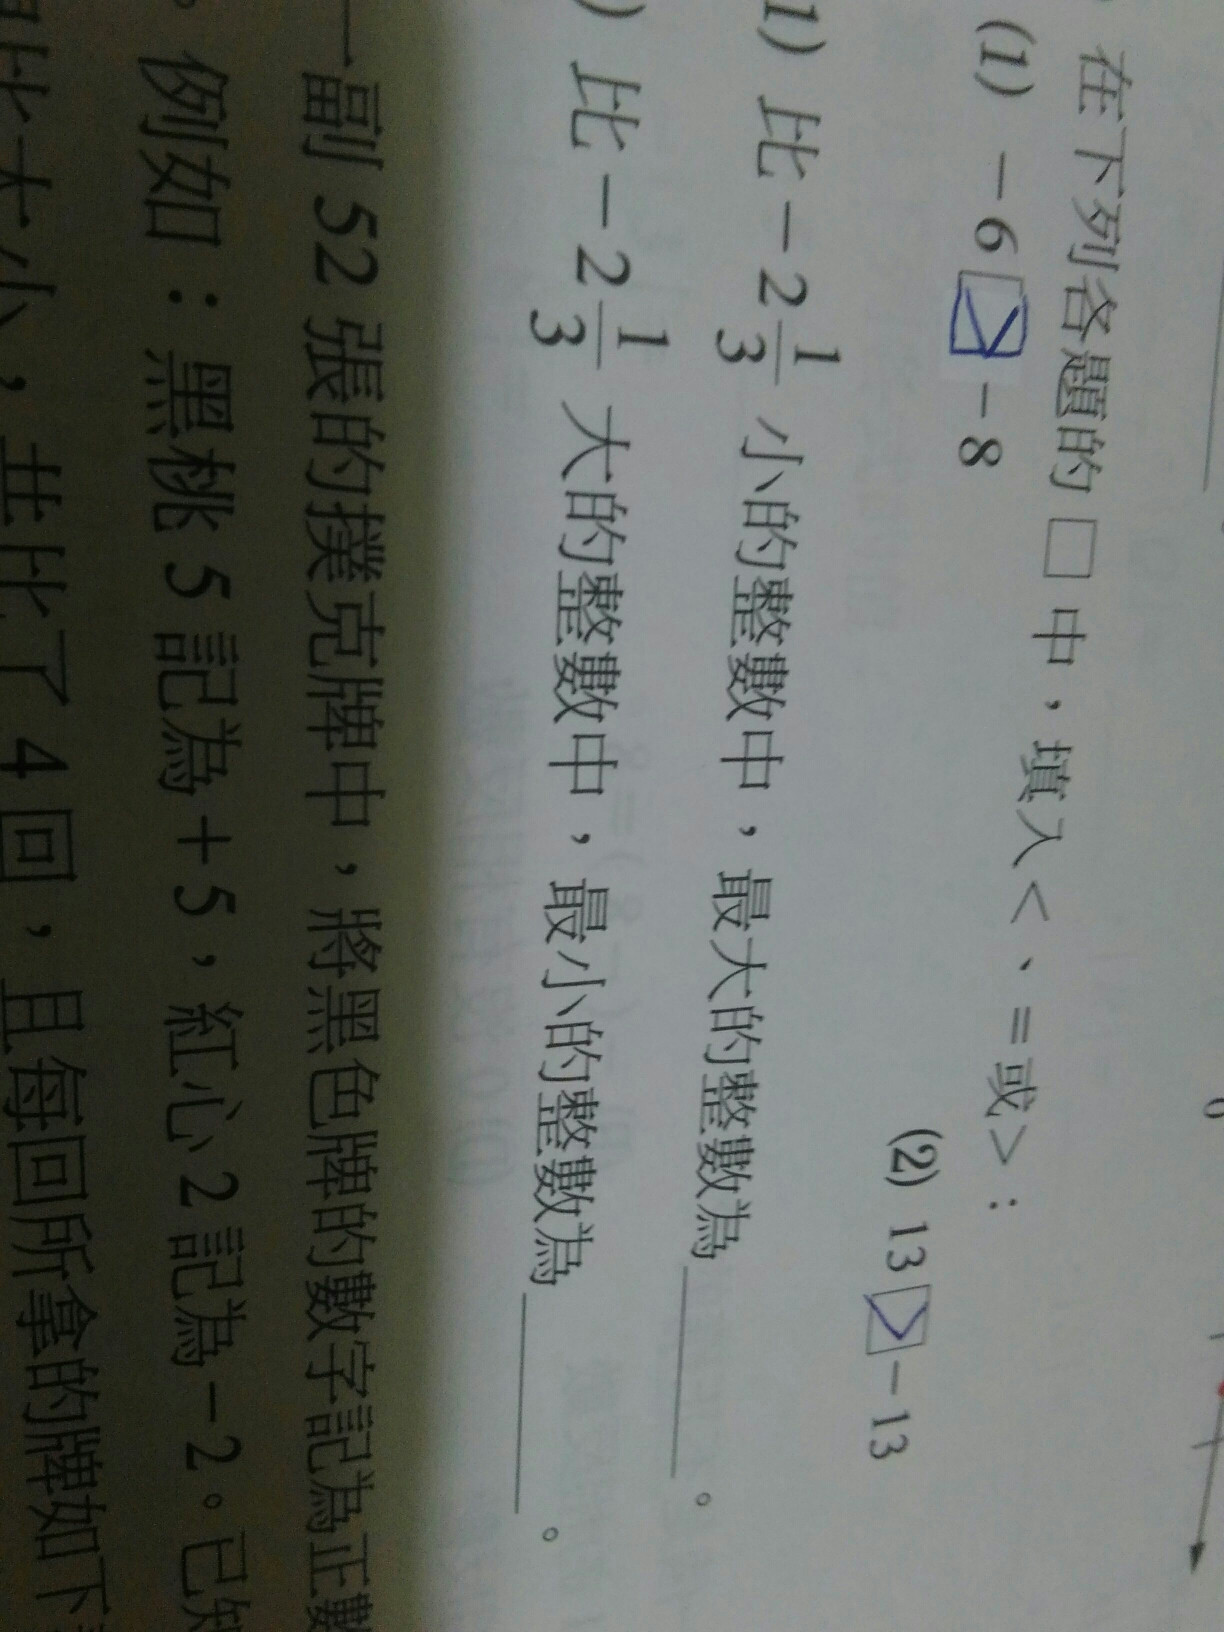 在下列各題的□中，填入<、=或>：
(1) －6 > －8
(2) 13 > －13
1) 比－2 1/3 小的整數中，最大的整數為______。
) 比－2 1/3 大的整數中，最小的整數為______。
一副 52 張的撲克牌中，將黑色牌的數字記為正數
。例如：黑桃 5 記為＋5，紅心 2 記為－2。已知
比大小，共比了 4 回，且每回所拿的牌如下